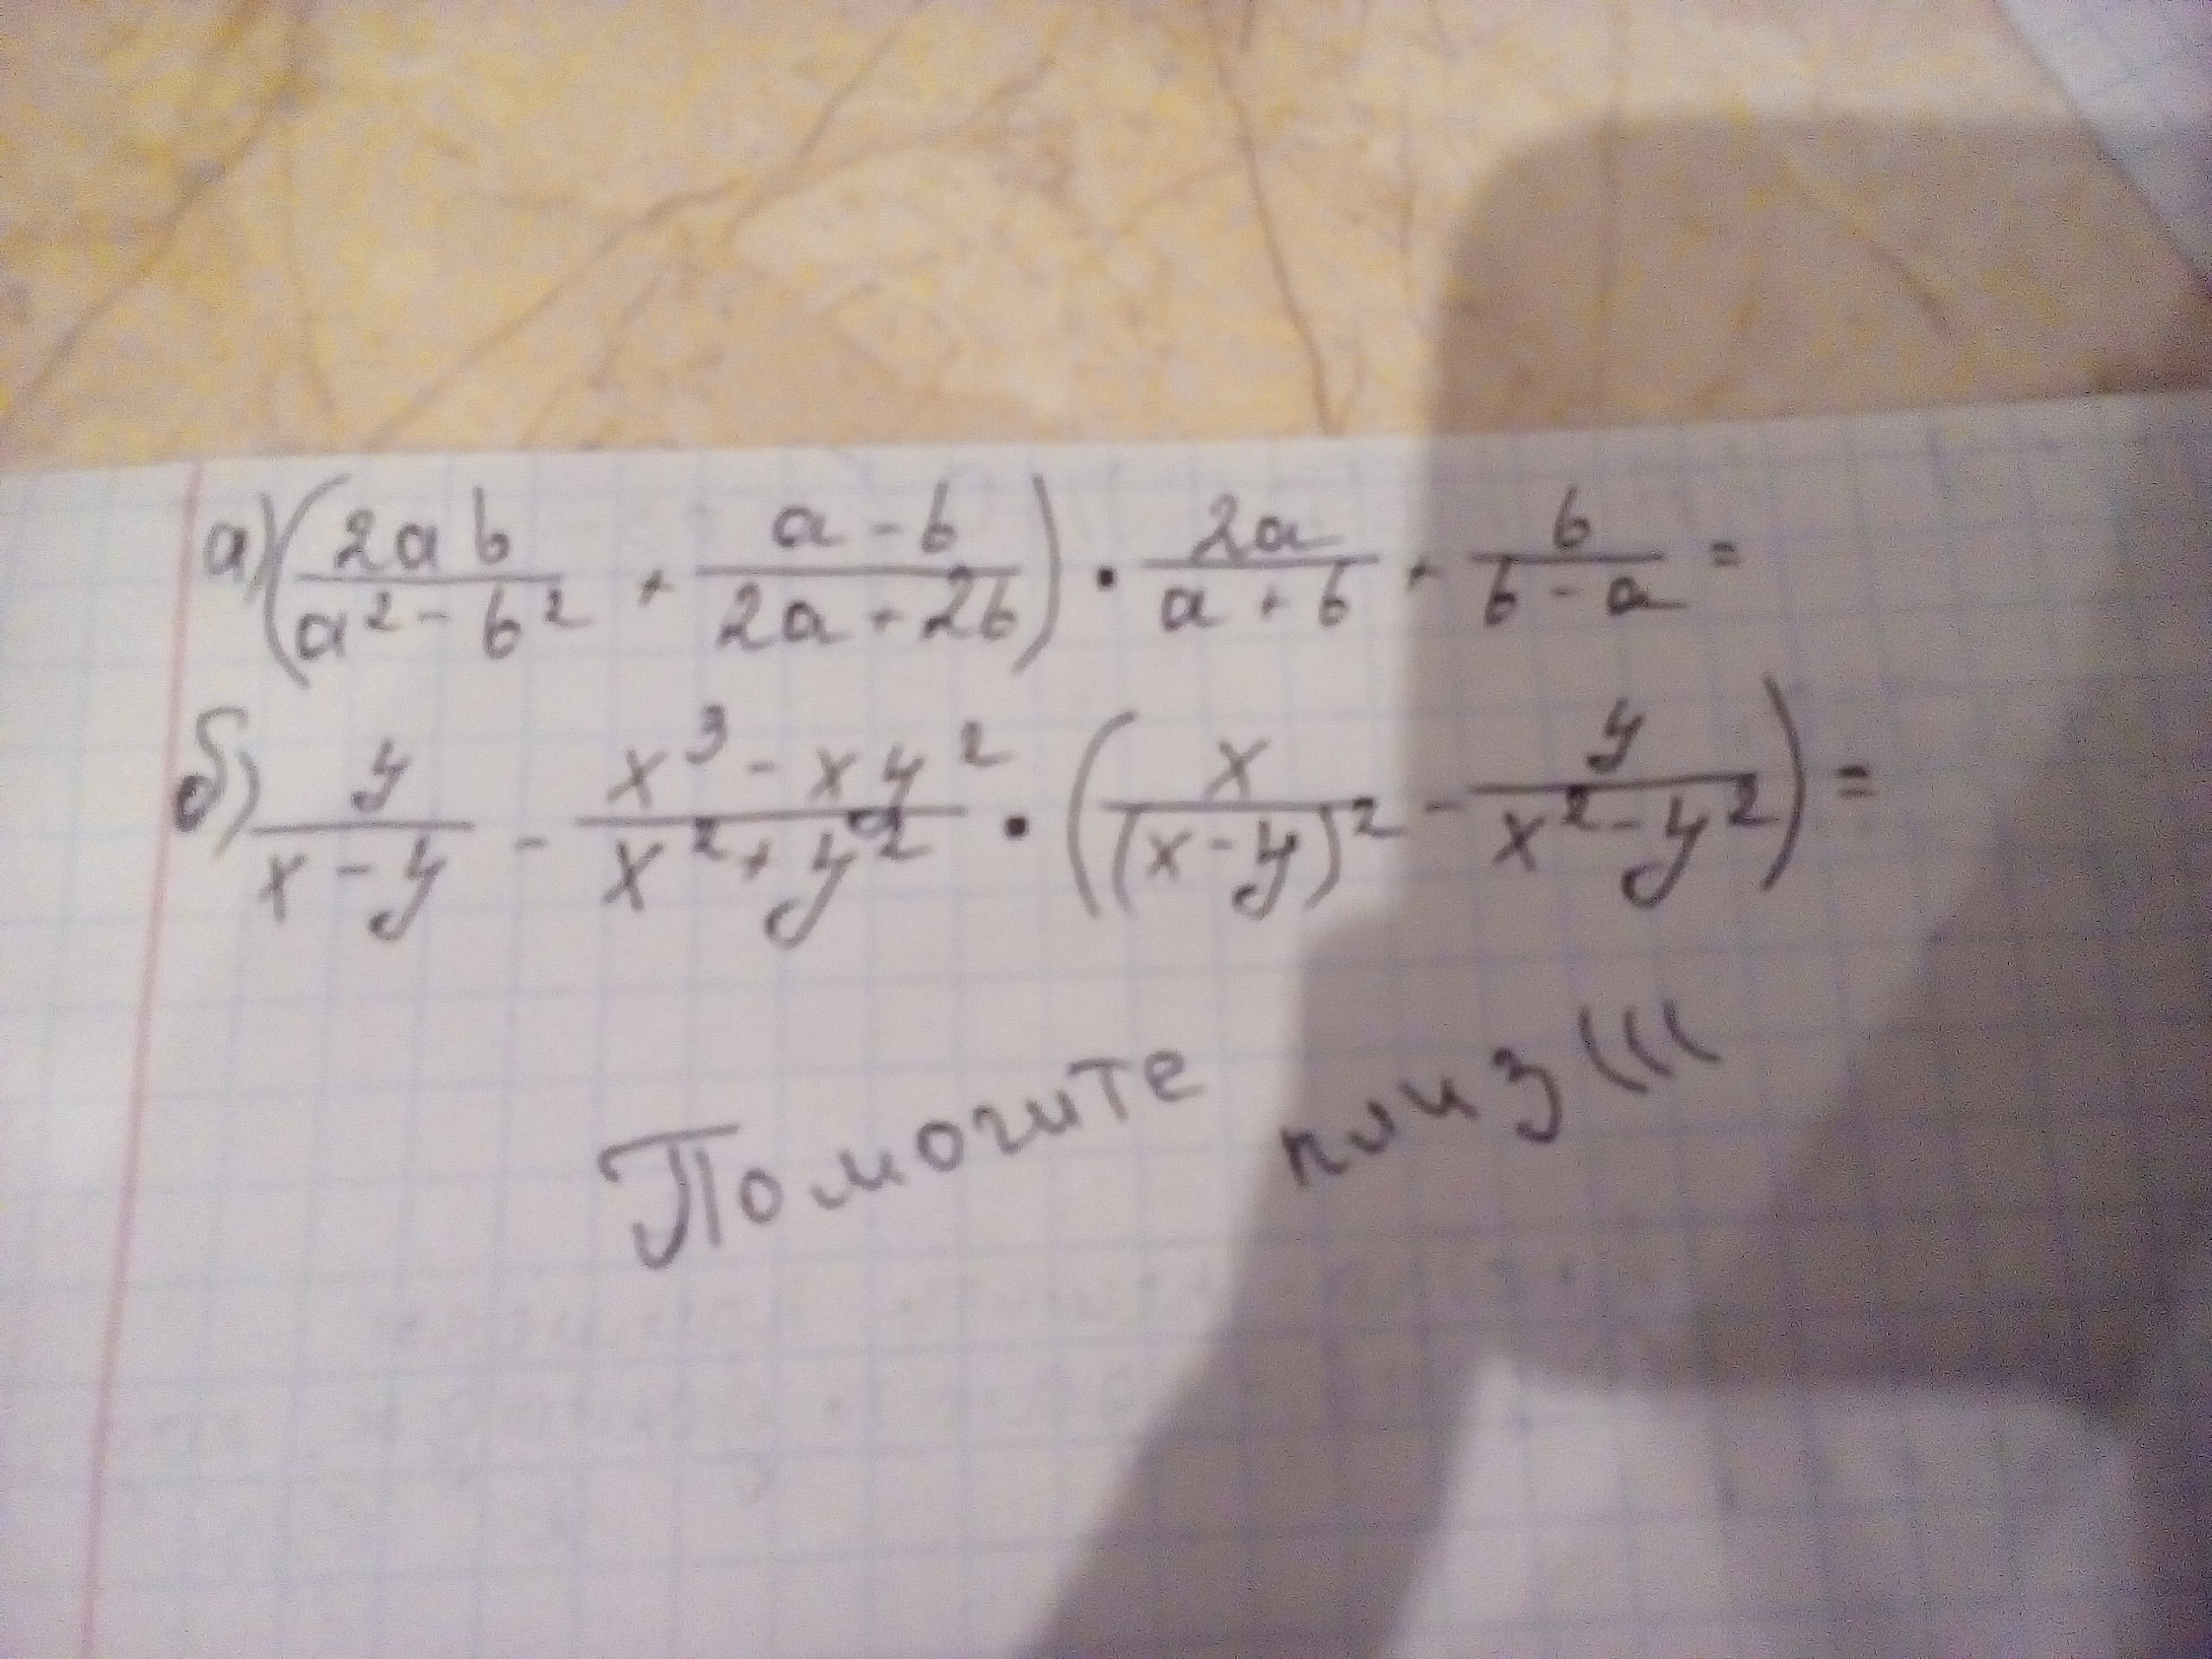 а) (2ab/(a² - b²) + (a - b)/(2a + 2b)) · 2a/(a + b) + b/(b - a) =
б) y/(x - y) - (x³ - xy²)/(x² + y²) · (x/(x - y)² - y/(x² - y²)) =
Помогите плиз(((